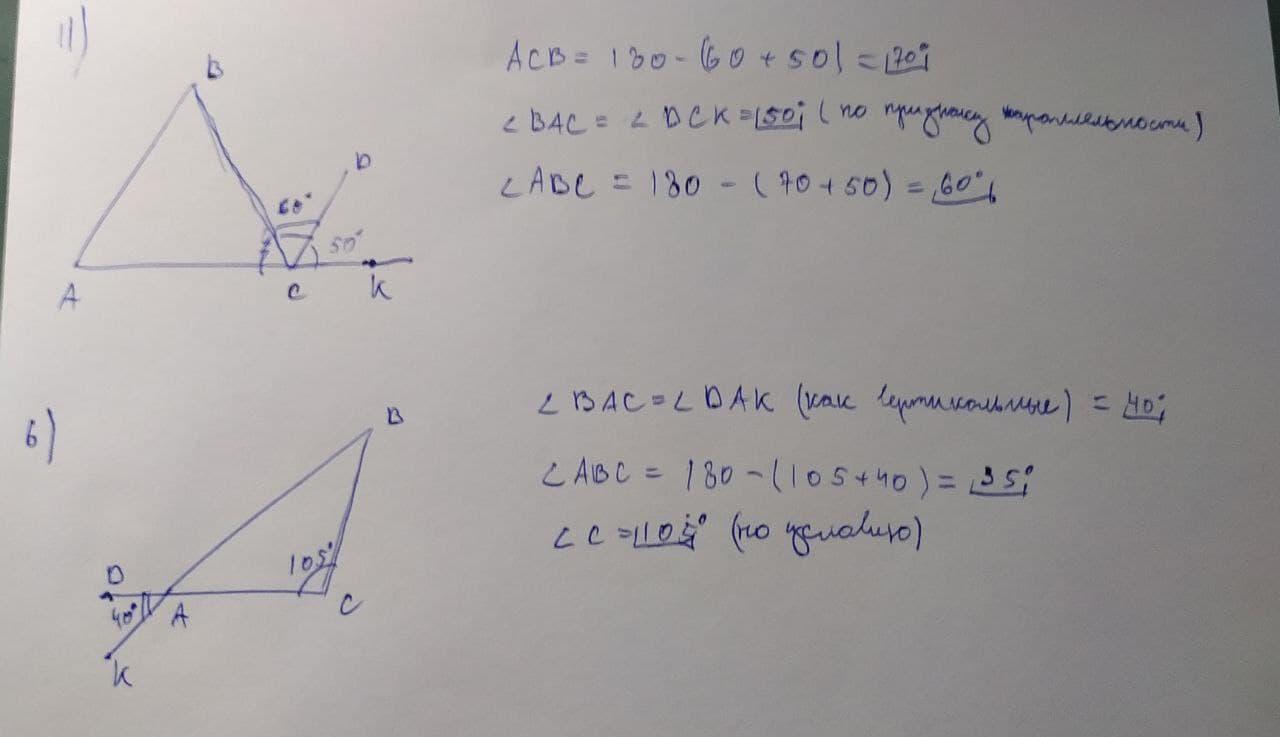 11)
B
D
60°
50°
A
C
K
ACB = 180 - (60 + 50) = 70°;
∠BAC = ∠DCK = 50°; (по признаку параллельности)
∠ABC = 180 - (70 + 50) = 60°;
6)
B
105°
D
40°
A
C
K
∠BAC = ∠DAK (как вертикольные) = 40°;
∠ABC = 180 - (105 + 40) = 35°;
∠C = 105° (по условию)